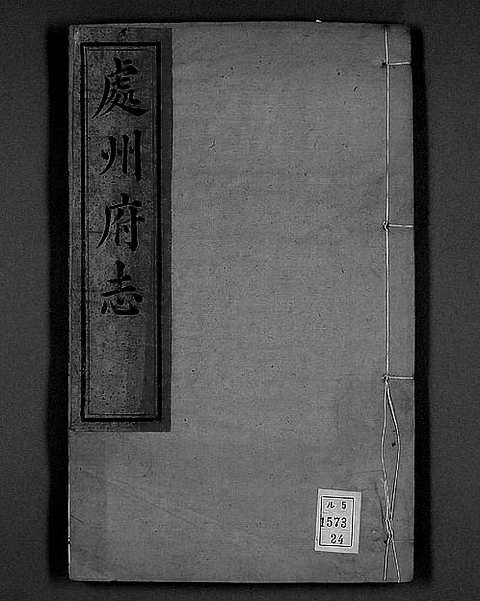 處州府志
ル 5
1573
24